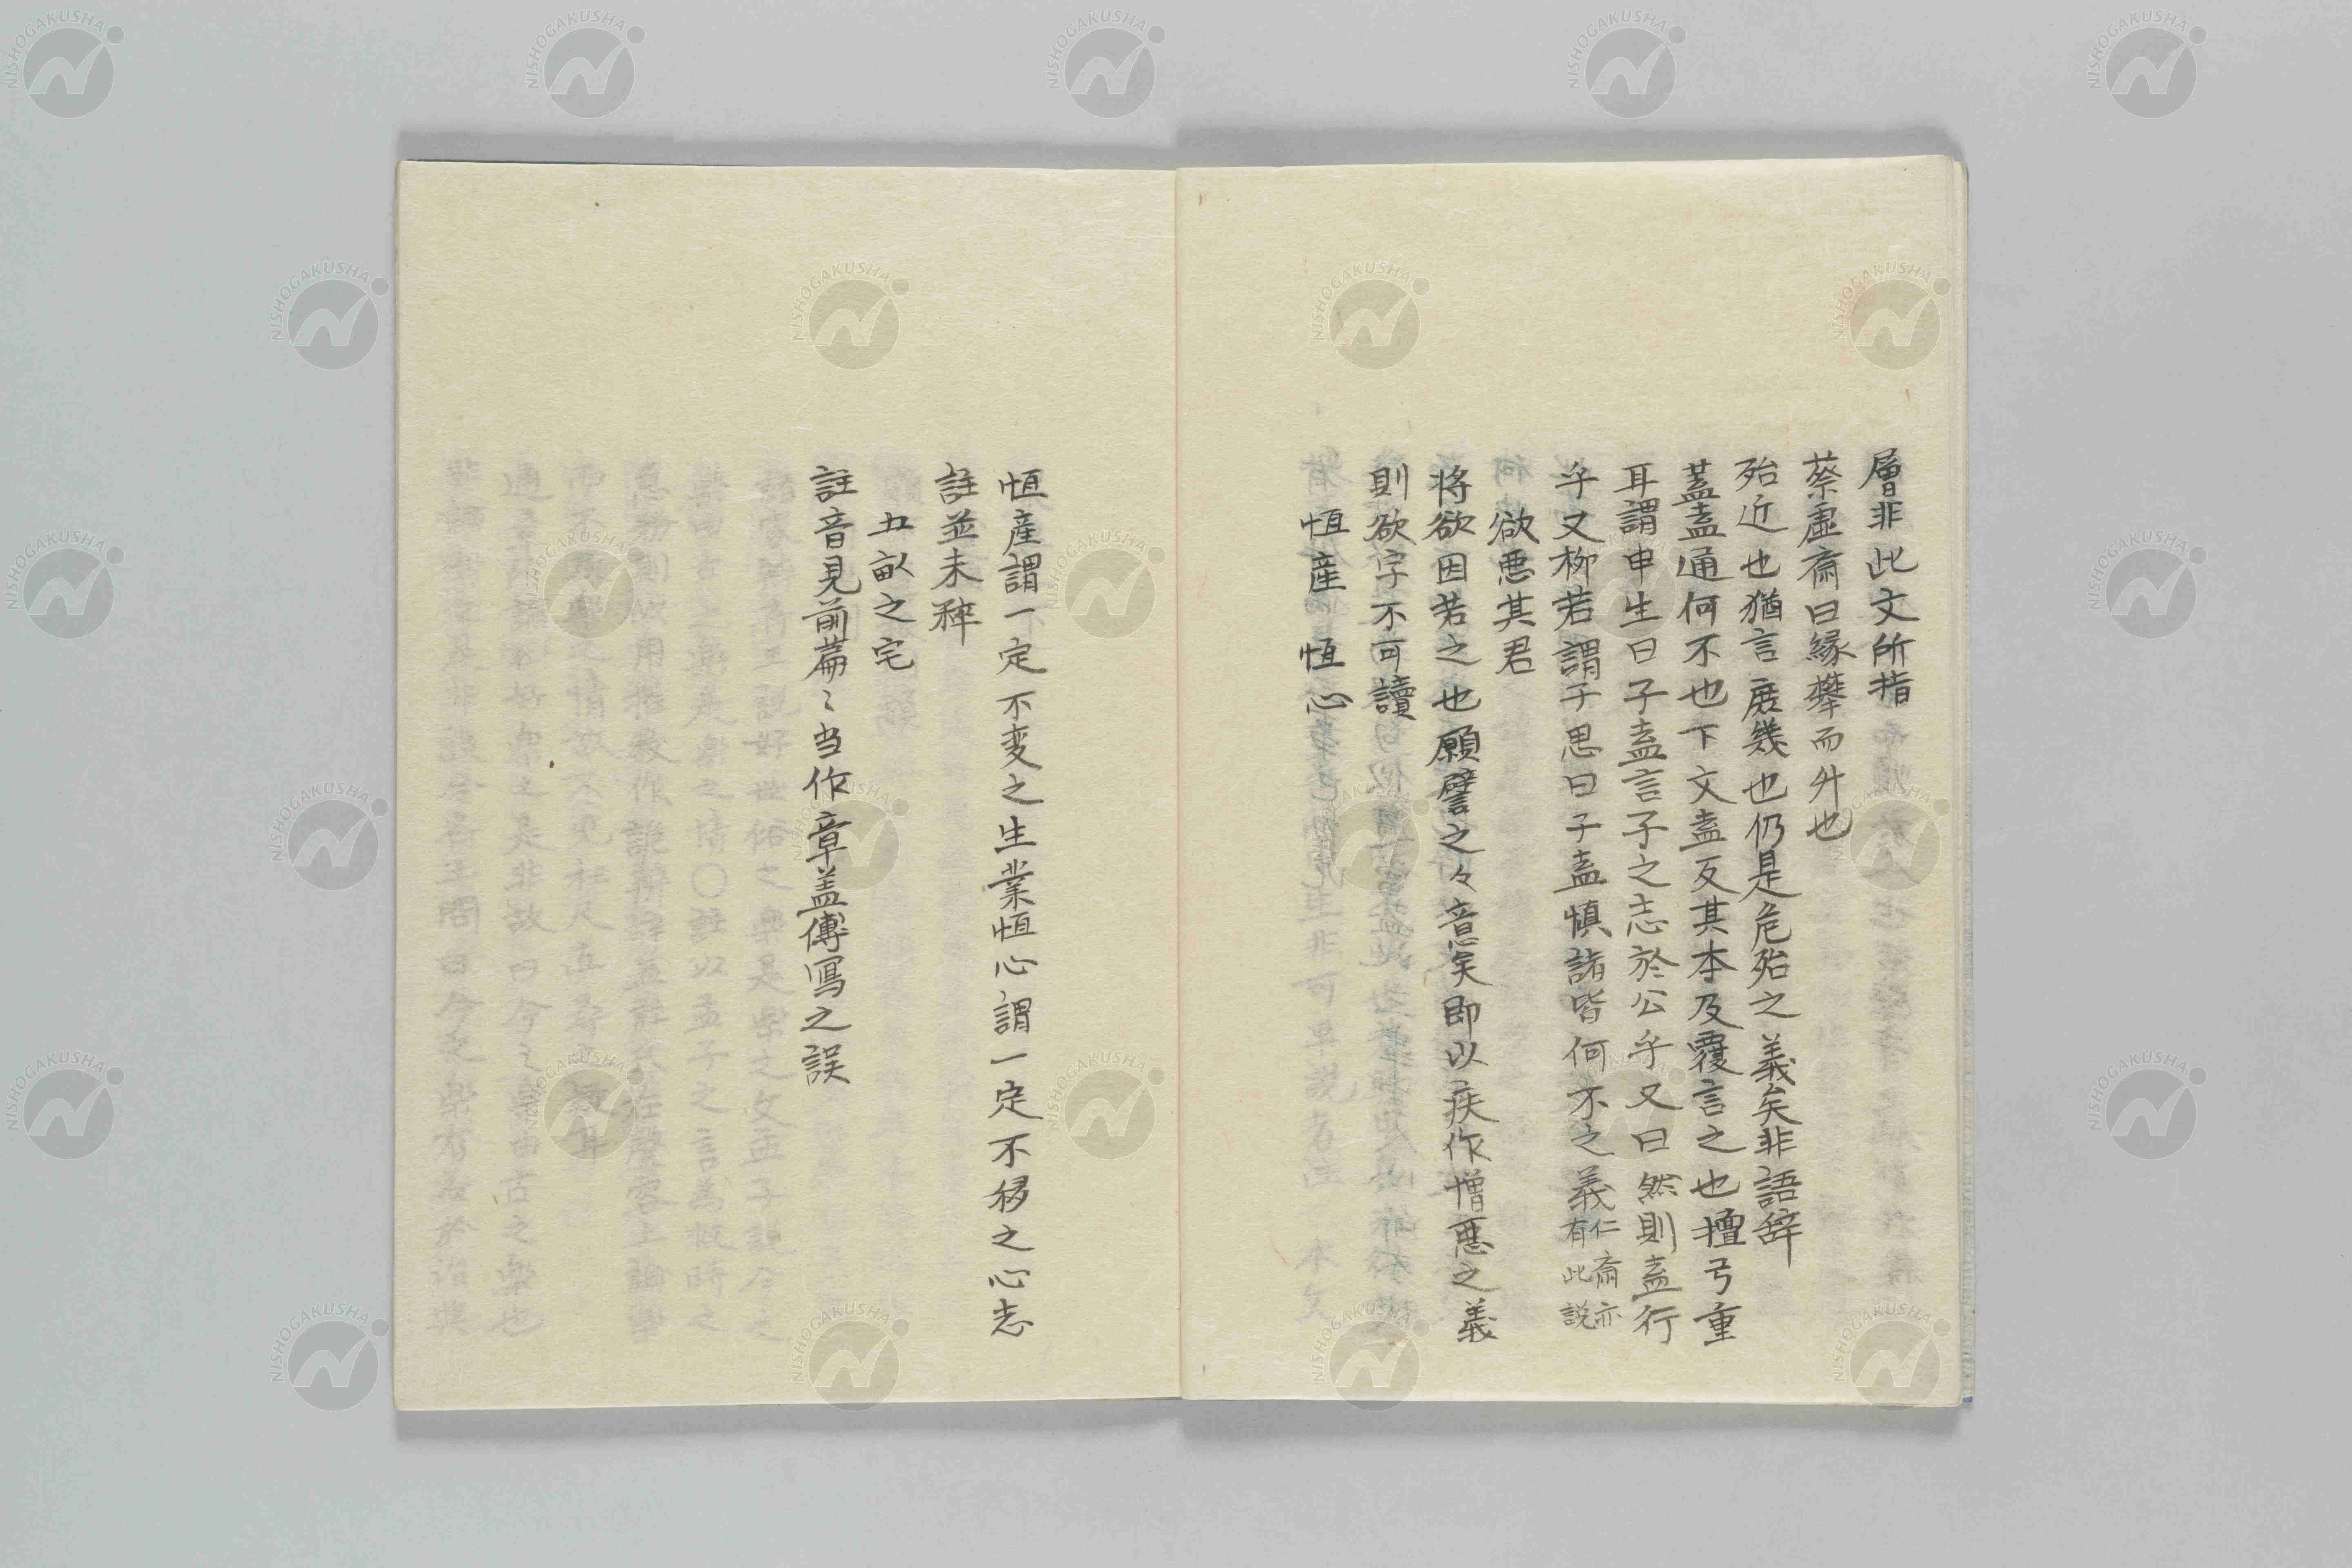 層非此文所指
蔡虛齋曰緣攀而升也
殆近也猶言庶幾也仍是危殆之義矣非語辞
蓋盍通何不也下文盍反其本及覆言之也檀弓重
耳謂申生曰子盍言子之志於公乎又曰然則盍行
乎又柳若謂子思曰子盍慎諸皆何不之義仁齋亦有此説
欲悪其君
将欲因若之也願譬之々意矣即以疾作憎悪之義
則欲字不可讀
恒産 恒心
恒産謂一定不変之生業恒心謂一定不移之心志
註並未稡
五畝之宅
註音見前篇〻当作章盖傳寫之誤